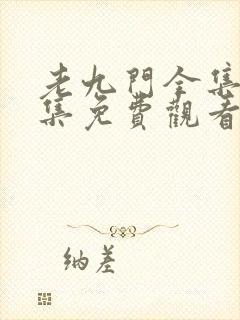 老九門全集
集免費觀看
纳差